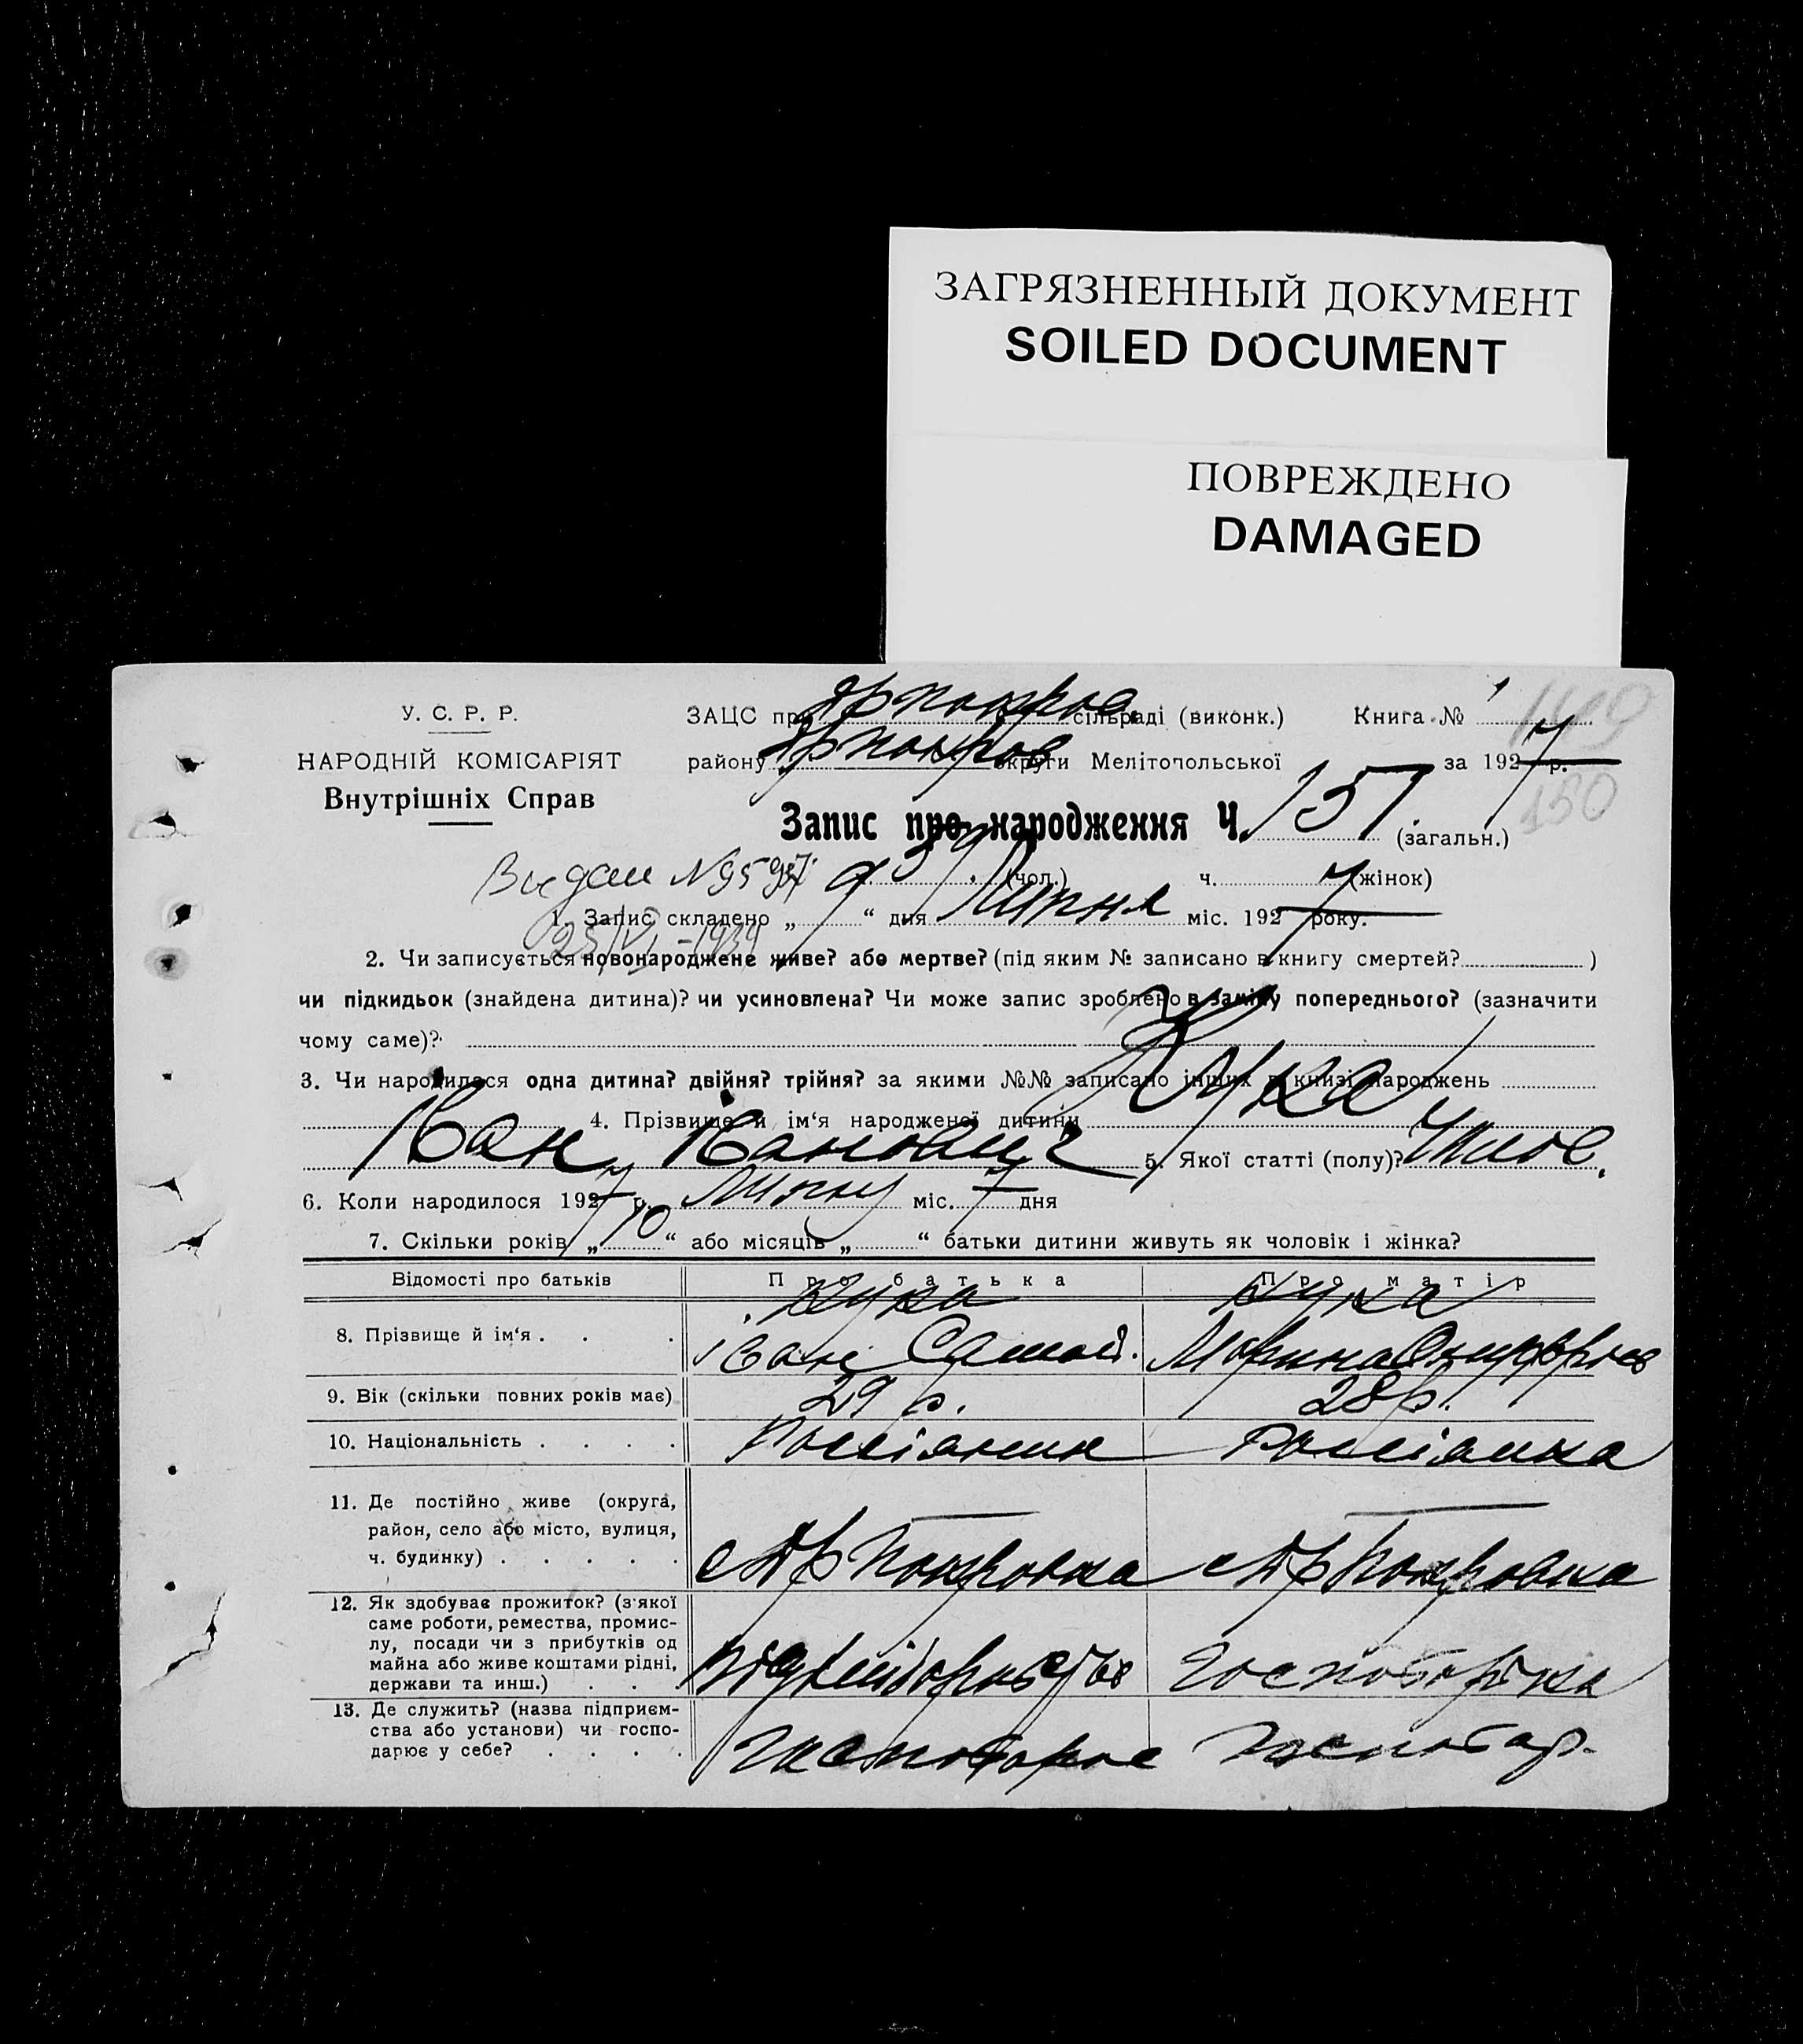 ЗАГРЯЗНЕННЫЙ ДОКУМЕНТ
SOILED DOCUMENT
ПОВРЕЖДЕНО
DAMAGED
У. С. Р. Р.
НАРОДНІЙ КОМІСАРІЯТ
Внутрішніх Справ
ЗАЦС при сільраді (виконк.) Книга №
району округи Мелітопольської за 1927 р.
Запис про народження Ч. 157. (загальн.)
150
(чол.) ч. (жінок)
1. Запис складено „ 9 “ дня Липня міс. 1927 року.
2. Чи записується новонароджене живе? або мертве? (під яким № записано в книгу смертей? )
чи підкидьок (знайдена дитина)? чи усиновлена? Чи може запис зроблено в заміну попереднього? (зазначити
чому саме)?
3. Чи народилася одна дитина? двійня? трійня? за якими №№ записано інших в книзі народжень
4. Прізвище й ім‘я народженої дитини Кука
Іван Іванович 5. Якої статті (полу)?
6. Коли народилося 1927 р. міс. 7 дня
7. Скільки років „ 10 “ або місяців „ “ батьки дитини живуть як чоловік і жінка?
Відомості про батьків Про батька Про матір
8. Прізвище й ім‘я . . . Кука Кука
Іван Самой. Марина
9. Вік (скільки повних років має) 29 р. 28 р.
10. Національність . . . . Россіянин Россіянка
11. Де постійно живе (округа,
район, село або місто, вулиця,
ч. будинку) . . . . .
12. Як здобуває прожиток? (з‘якої
саме роботи, ремества, промис-
лу, посади чи з прибутків од
майна або живе коштами рідні,
держави та инш.) . . .
13. Де служить? (назва підприєм-
ства або установи) чи госпо-
дарює у себе? . . . .